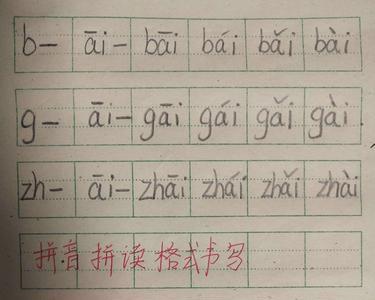 b- āi- bāi bái bǎi bài
g- āi- gāi gái gǎi gài.
zh- āi- zhāi zhái zhǎi zhài
拼音拼读格式书写